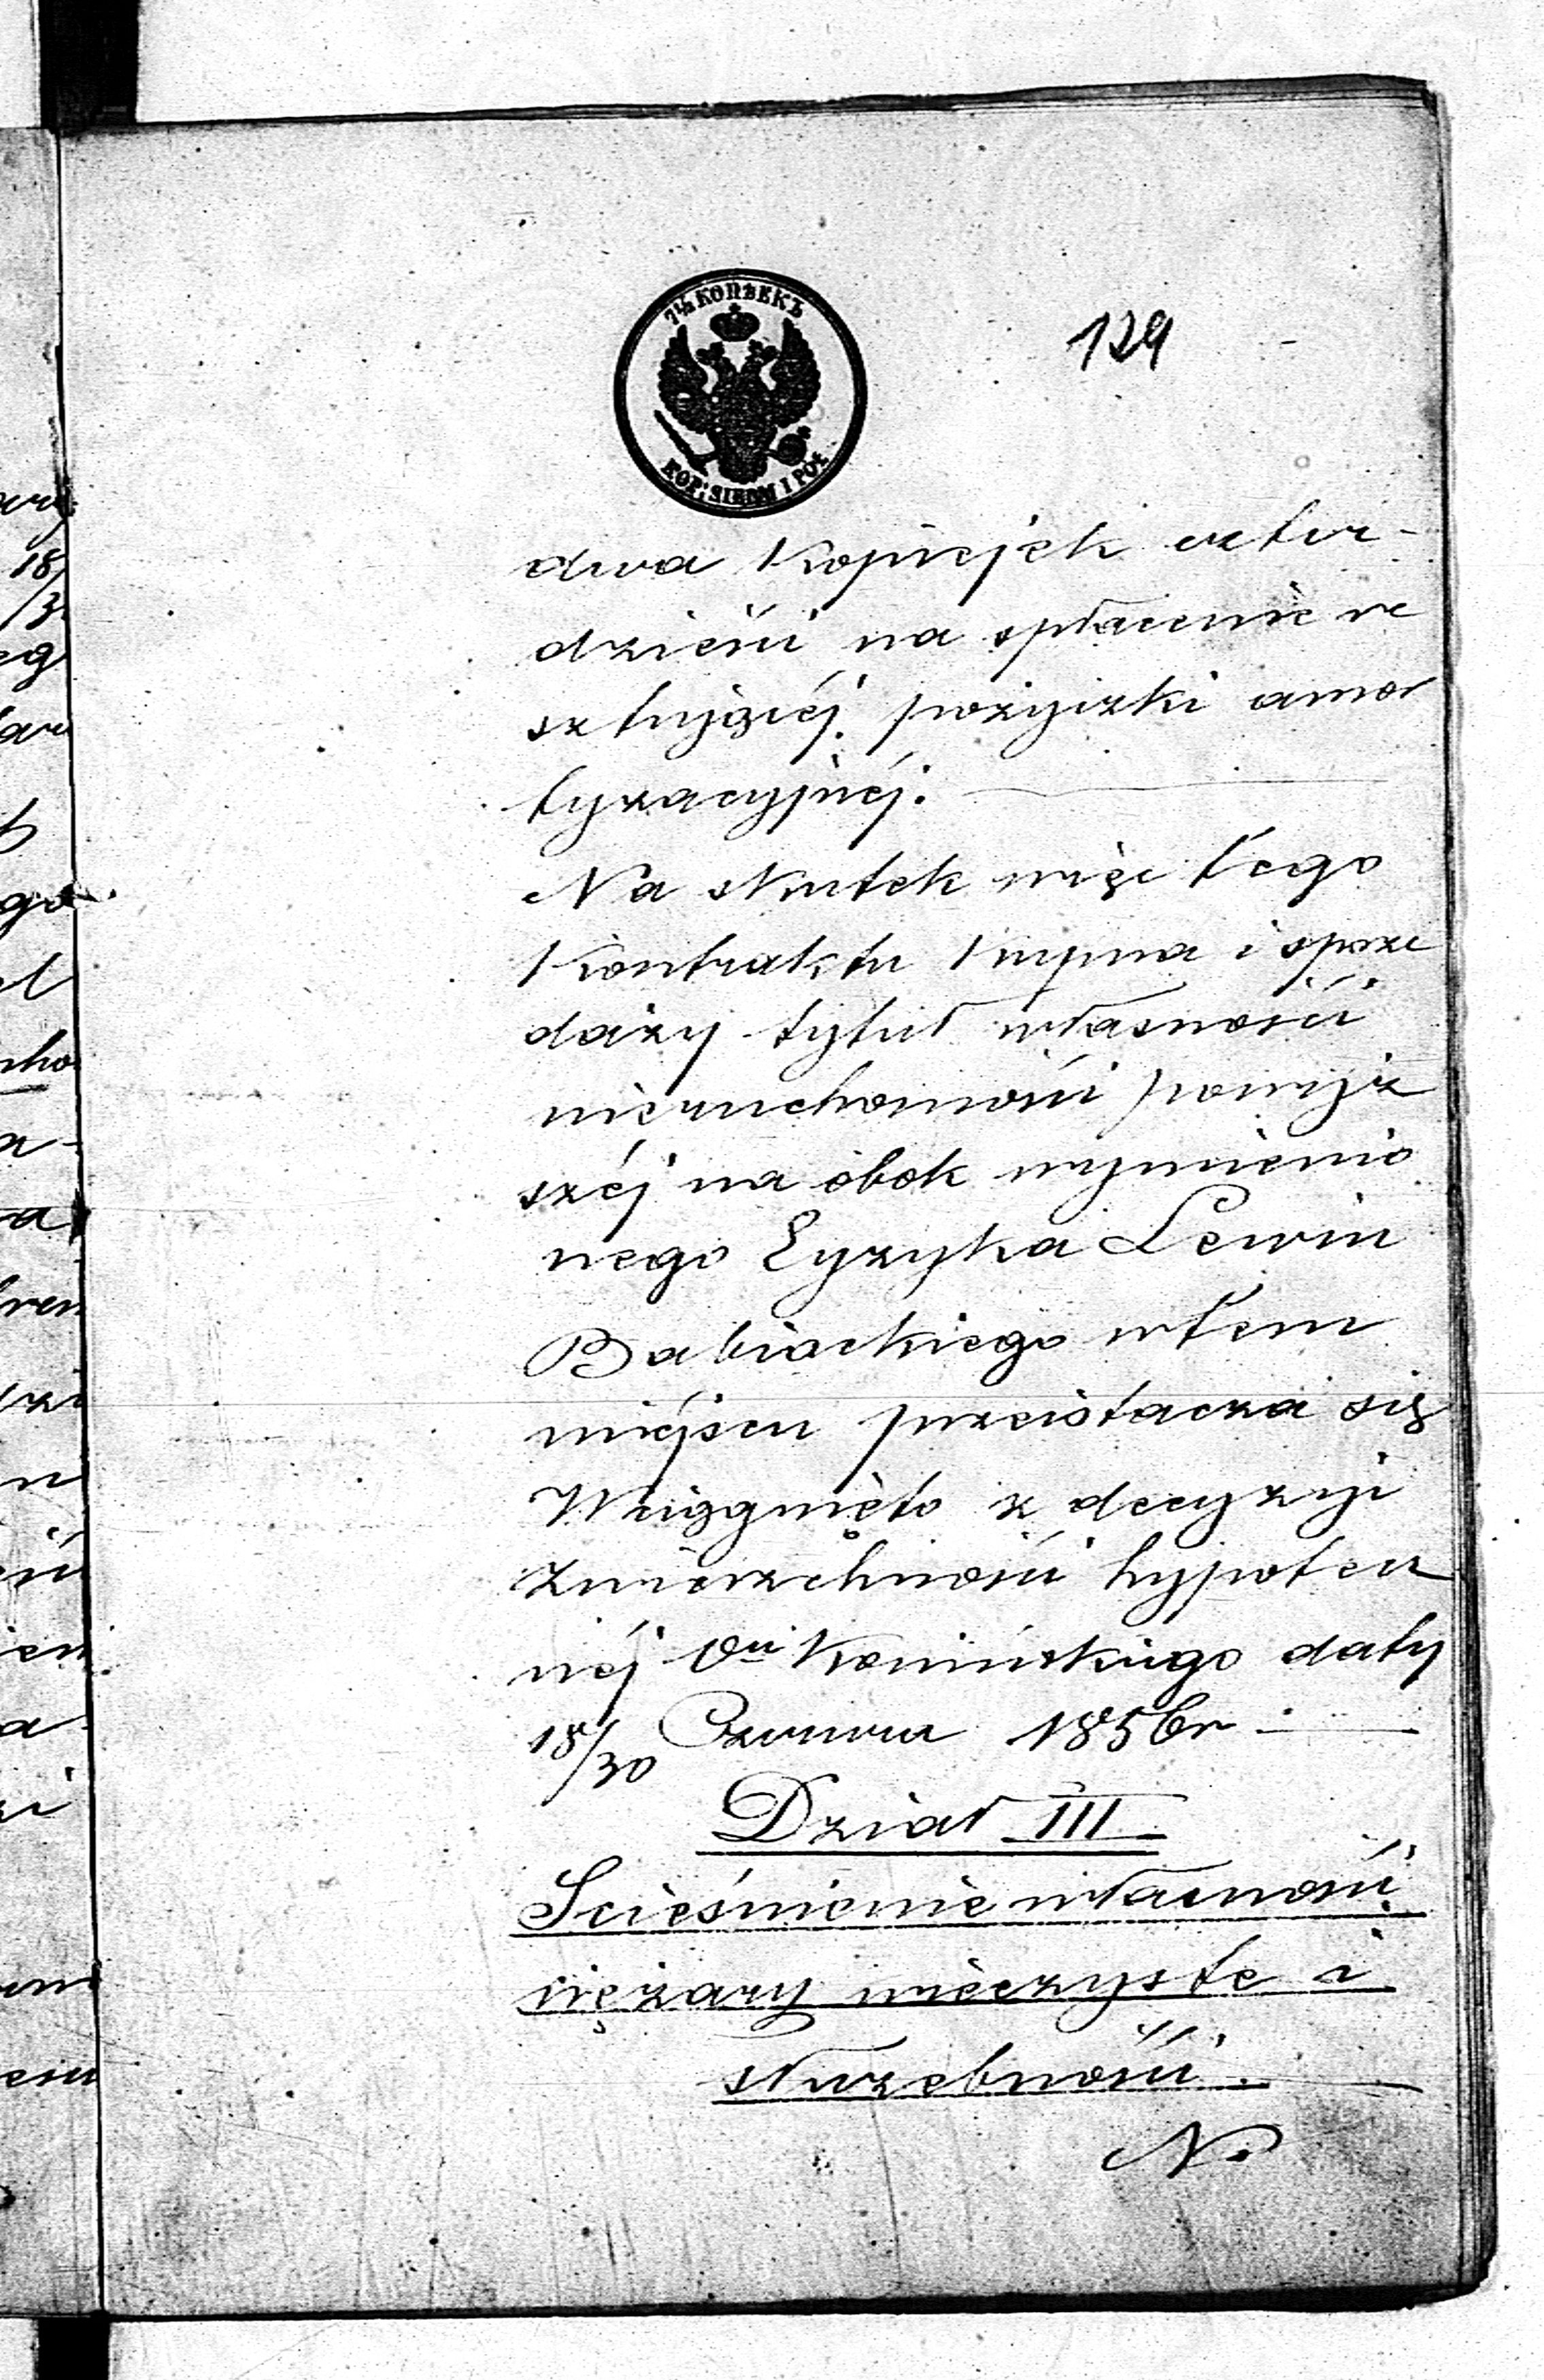 7½ КОПѢЕКЪ
KOP: SIEDM I PÓŁ
129
dwa kopiejek czter-
dzieści na spłacenie re
sztującéj pożyczki amor
tyzacyjnéj.
Na skutek więc tego
Kontraktu kupna i sprze
daży tytuł własności
nieruchomości powyż
széj na obok wymienio
nego Eyzyka Lewin
Babiackiego w tem
miejscu przeistacza się
Wciągnięto z decyzyi
Zwierzchności hypotecz
néj Ou Konińskiego daty
18/30 Czerwca 1856r
Dział III
Scieśnienie własności
ciężary wieczyste i
służebności.
N.